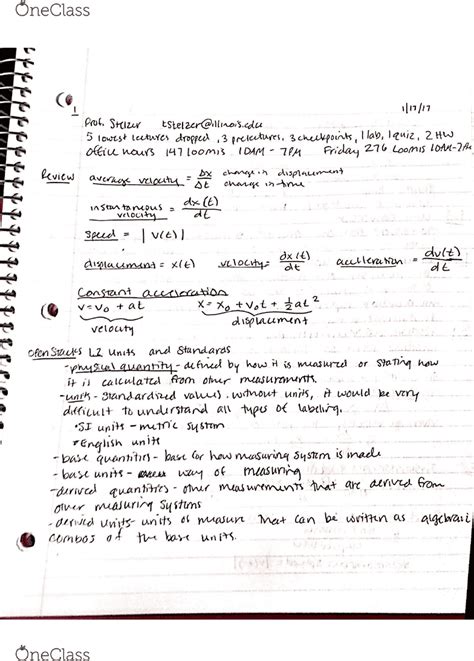 OneClass
1
1/17/17
Prof. Stelzer tstelzer@illinois.edu
5 lowest lectures dropped, 3 prelectures, 3 checkpoints, 1 lab, 1 quiz, 2 HW
office hours 147 Loomis 10AM - 7PM Friday 276 Loomis 10AM-7PM
Review average velocity = Δx/Δt change in displacement / change in time
instantaneous velocity = dx(t)/dt
speed = |v(t)|
displacement = x(t) velocity = dx(t)/dt acceleration = dv(t)/dt
Constant acceleration
v = v₀ + at x = x₀ + v₀t + ½at²
velocity displacement
OpenStacks 1.2 units and standards
- physical quantity - defined by how it is measured or stating how
it is calculated from other measurements.
- units - standardized values. without units, it would be very
difficult to understand all types of labeling.
•SI units - metric system
•English units
- base quantities - base for how measuring system is made
- base units - way of measuring
- derived quantities - other measurements that are derived from
other measuring systems
- derived units - units of measure that can be written as algebraic
combos of the base units.
OneClass